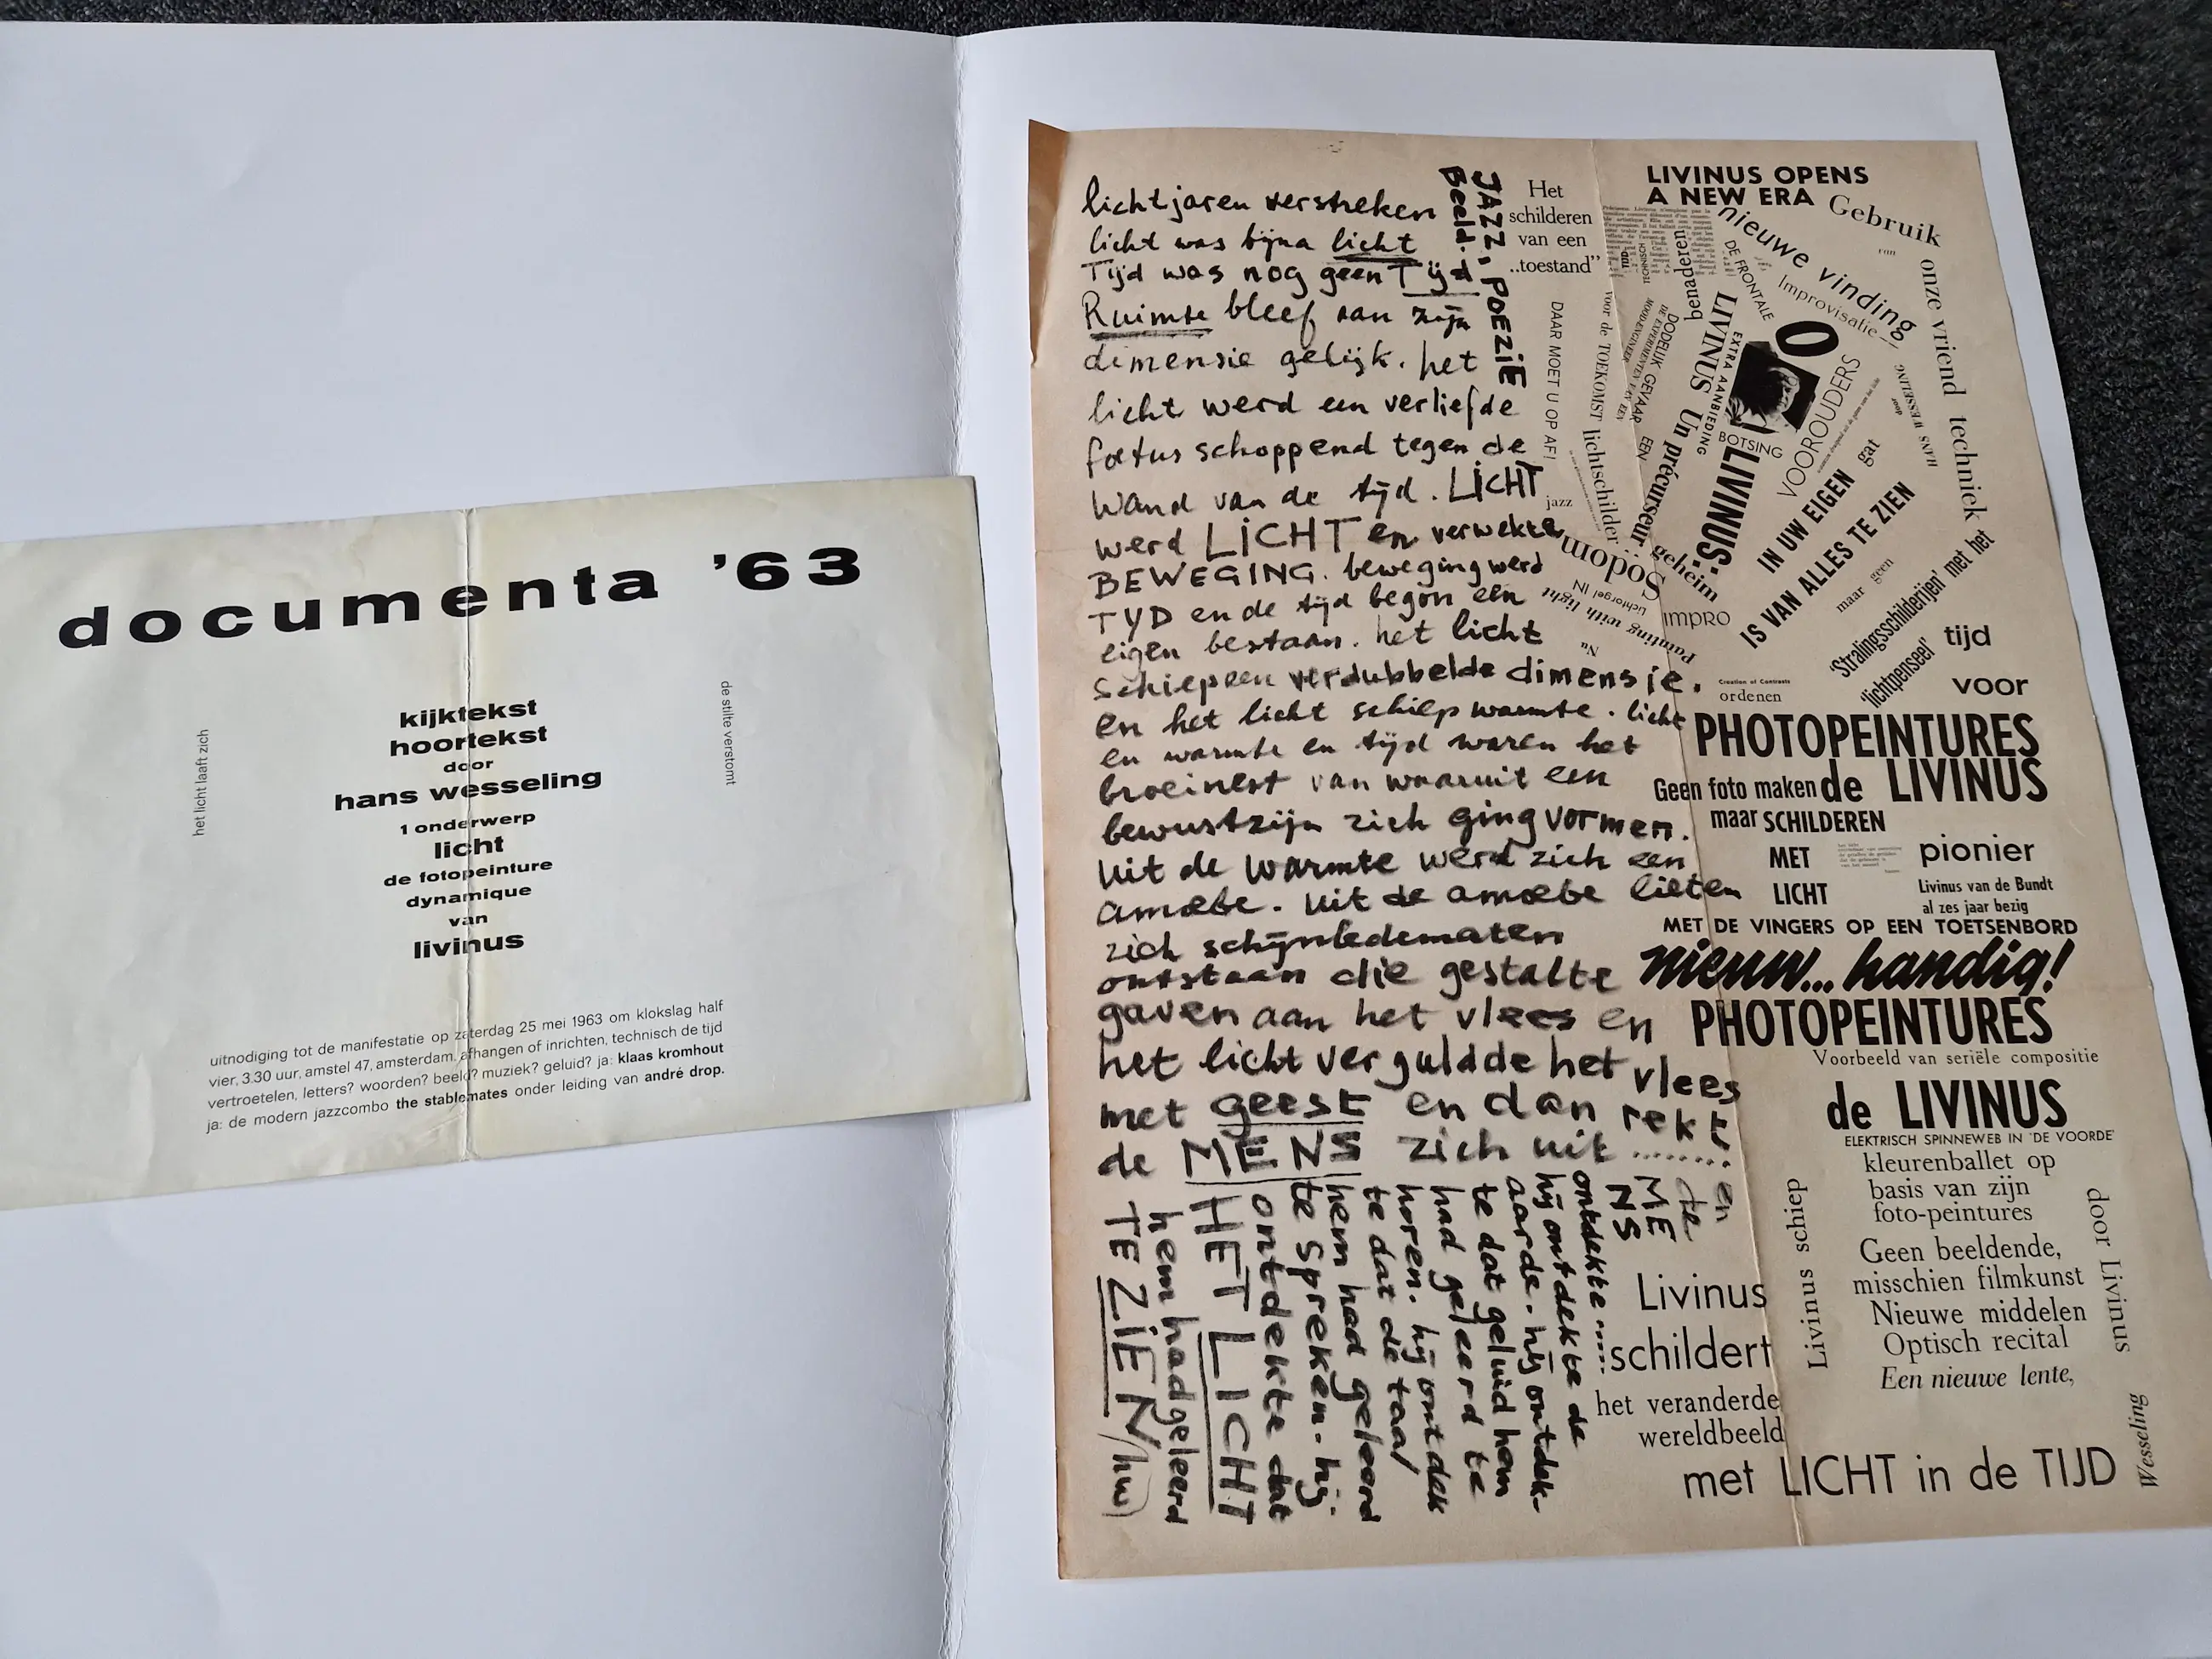 documenta '63
het licht laaft zich
de stilte verstomt
kijktekst
hoortekst
door
hans wesseling
1 onderwerp
licht
de fotopeinture
dynamique
van
livinus
uitnodiging tot de manifestatie op zaterdag 25 mei 1963 om klokslag half
vier, 3.30 uur, amstel 47, amsterdam. afhangen of inrichten, technisch de tijd
vertroetelen, letters? woorden? beeld? muziek? geluid? ja: klaas kromhout
ja: de modern jazzcombo the stablemates onder leiding van andré drop.
lichtjaren verstreken
licht was bijna licht
Tijd was nog geen Tijd
Ruimte bleef aan zijn
dimensie gelijk. het
licht werd een verliefde
foetus schoppend tegen de
wand van de tijd. LICHT
werd LICHT en verwekte
BEWEGING. beweging werd
TYD en de tijd begon een
eigen bestaan. het licht
schiep een verdubbelde dimensie.
en het licht schiep warmte. licht
en warmte en tijd waren het
broeinest van waaruit een
bewustzijn zich ging vormen.
uit de warmte werd zich een
amoebe. uit de amoebe lieten
zich schijnledematen
ontstaan die gestalte
gaven aan het vlees en
het licht verguldde het vlees
met geest en dan rekt
de MENS zich uit ........
en
de
ME
NS
ontdekte .....
hij ontdekte de
aarde. hij ontdek-
te dat geluid hem
had geleerd te
horen. hij ontdek
te dat de taal
hem had geleerd
te spreken. hij
ontdekte dat
HET LICHT
hem had geleerd
TE ZIEN (hw)
JAZZ. POEZIE
Beeld.
Het
schilderen
van een
..toestand"
LIVINUS OPENS
A NEW ERA
Gebruik
van
onze vriend techniek
nieuwe vinding
Improvisatie
DE FRONTALE
benaderen
TIJD
TECHNISCH
DAAR MOET U OP AF!
voor de TOEKOMST lichtschilder
DODELIJK GEVAAR
DE EXPERIMENTEN VAN EEN
EEN
LIVINUS Un précurseur
EXTRA AANBIEDING
O
BOTSING
VOOROUDERS
door
HANS WESSELING
LIVINUS:
IN UW EIGEN gat
IS VAN ALLES TE ZIEN
jazz
Sodom
geheim
lichtorgel IN
Painting with light
Nu
IMPRO
maar geen
'Stralingsschilderijen' met het
'lichtpenseel'
tijd
voor
Creation of Contrasts
ordenen
PHOTOPEINTURES
Geen foto maken de LIVINUS
maar SCHILDEREN
MET
LICHT
pionier
Livinus van de Bundt
al zes jaar bezig
MET DE VINGERS OP EEN TOETSENBORD
nieuw... handig!
PHOTOPEINTURES
Voorbeeld van seriële compositie
de LIVINUS
ELEKTRISCH SPINNEWEB IN 'DE VOORDE'
kleurenballet op
basis van zijn
foto-peintures
Geen beeldende,
misschien filmkunst
Nieuwe middelen
Optisch recital
Een nieuwe lente,
Livinus schiep
door Livinus
Livinus
schildert
het veranderde
wereldbeeld
met LICHT in de TIJD
Wesseling